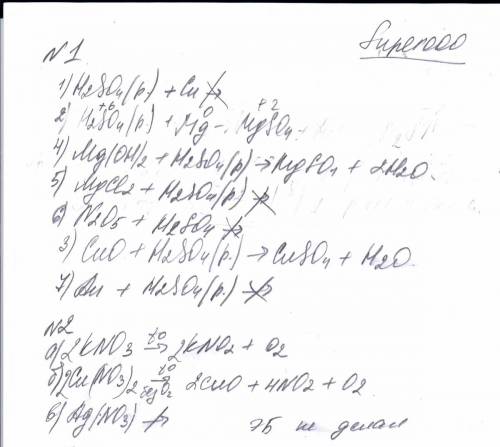 Superooo
N1
1) H2SO4(р.) + Cu ↛
2) H2SO4(р) + Mg – MgSO4 +
+6 0 +2
4) Mg(OH)2 + H2SO4(р) → MgSO4 + 2H2O
5) MgCl2 + H2SO4(р) ↛
6) N2O5 + H2SO4 ↛
3) CuO + H2SO4(р.) → CuSO4 + H2O
7) Au + H2SO4(р.) ↛
N2
а) 2KNO3 →t0 2KNO2 + O2
б) 2Cu(NO3)2 →t0 2CuO + 4NO2 + O2
в) Ag(NO3) ↛
ЭБ не делал